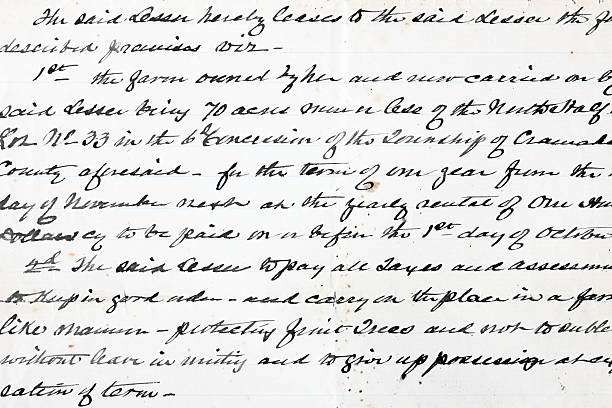 The said Lesser hereby leases to the said Lesser the f
described premises viz -
1st the farm owned by her and now carried on by
said Lesser being 70 acres more or less of the North Half of
Lot No 33 in the 6th Concession of the Township of Cramah
County aforesaid - for the term of one year from the
day of November next at the yearly rental of One Hun
Dollars cy to be paid on or before the 1st day of October
2d The said Lesser to pay all Taxes and assessm
to Keep in good order - and carry on the place in a farm
like manner - protecting fruit Trees and not to suble
without leave in writing and to give up possession at
sation of term -